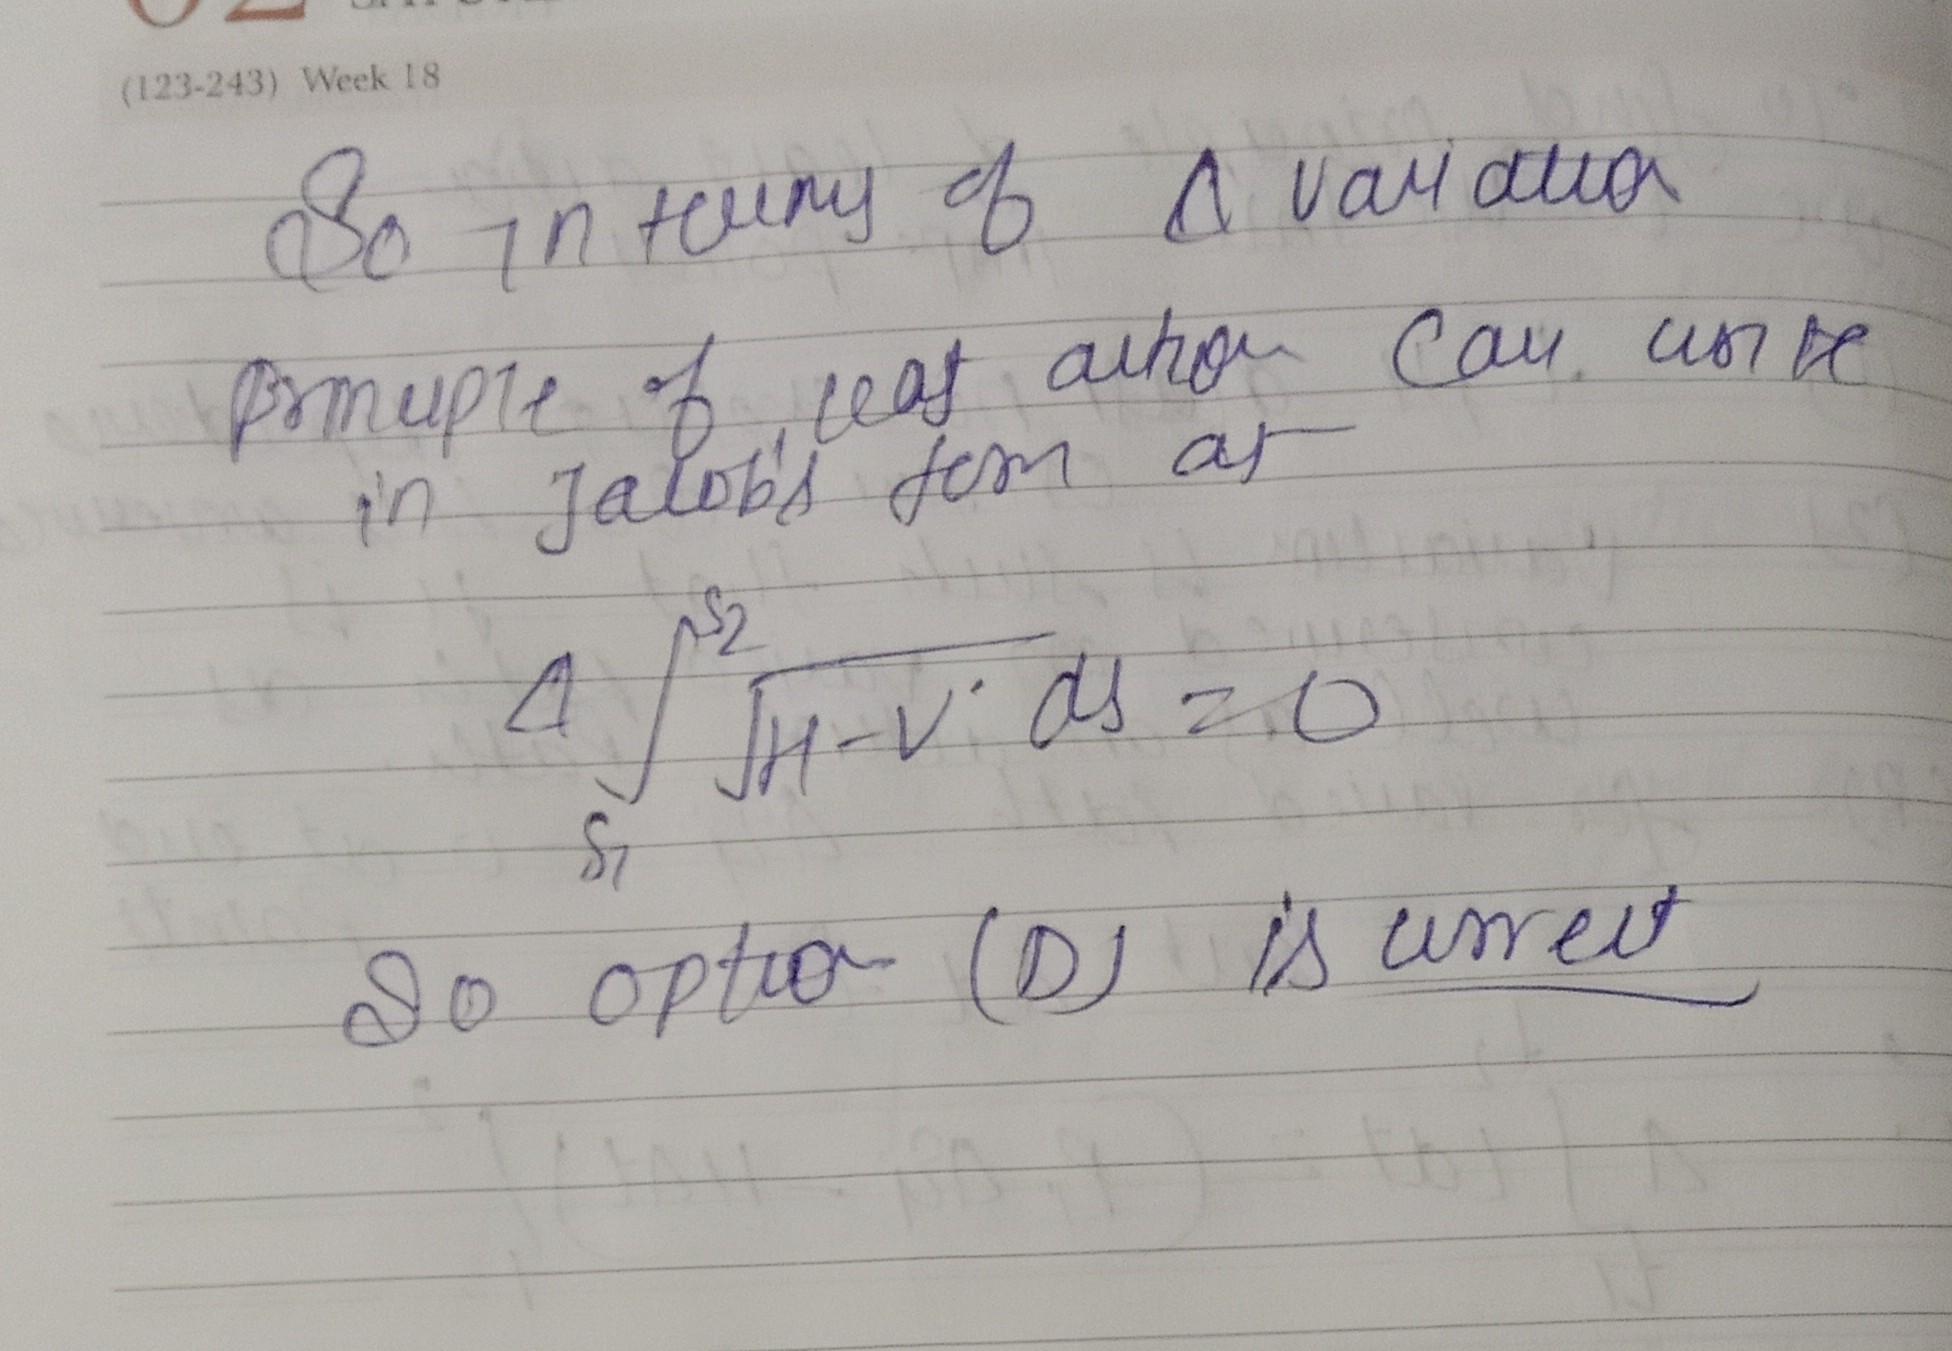 02
(123-243) Week 18
So in terms of Δ variation
Principle of least action can write
in Jacobi's form as
Δ ∫_{S1}^{S2} √(H-V) ds = 0
So option (D) is correct